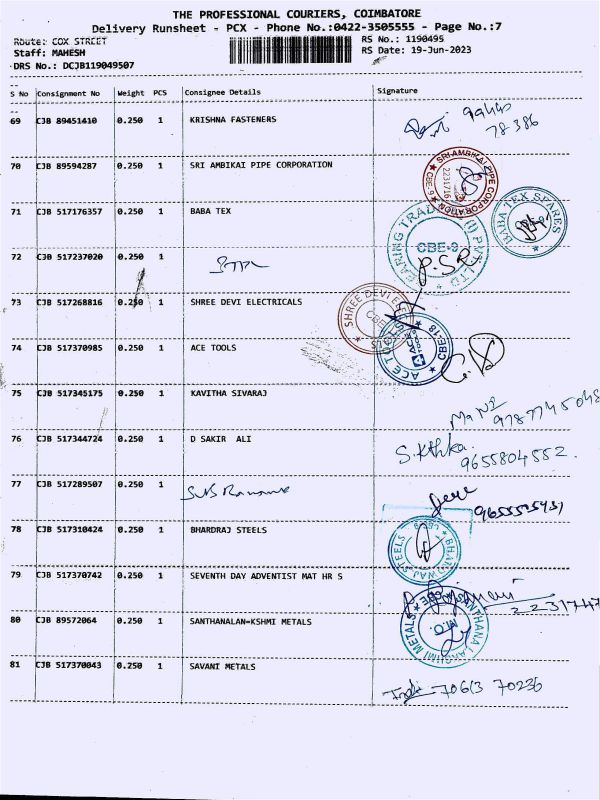 THE PROFESSIONAL COURIERS, COIMBATORE
Delivery Runsheet - PCX - Phone No.:0422-3505555 - Page No.:7
Route: COX STREET
RS No.: 1190495
Staff: MAHESH
RS Date: 19-Jun-2023
DRS No.: DCJB119049507
S No Consignment No Weight PCS Consignee Details Signature
69 CJB 89451410 0.250 1 KRISHNA FASTENERS
78-386
70 CJB 89594287 0.250 1 SRI AMBIKAI PIPE CORPORATION
SRI AMBIKAI PIPE CORPORATION CBE-6
71 CJB 517176357 0.250 1 BABA TEX
BABA TEX SPARES
72 CJB 517237020 0.250 1
CBE-9
P.SR
73 CJB 517268816 0.250 1 SHREE DEVI ELECTRICALS
SHREE DEVI
74 CJB 517370985 0.250 1 ACE TOOLS
ACE TOOLS CBE-18
75 CJB 517345175 0.250 1 KAVITHA SIVARAJ
76 CJB 517344724 0.250 1 D SAKIR ALI
9655804552.
77 CJB 517289507 0.250 1
78 CJB 517310424 0.250 1 BHARDRAJ STEELS
STEELS
79 CJB 517370742 0.250 1 SEVENTH DAY ADVENTIST MAT HR S
2231747
80 CJB 89572064 0.250 1 SANTHANALAN=KSHMI METALS
SANTHANA LAKSHMI METALS
81 CJB 517370043 0.250 1 SAVANI METALS
70613 70236